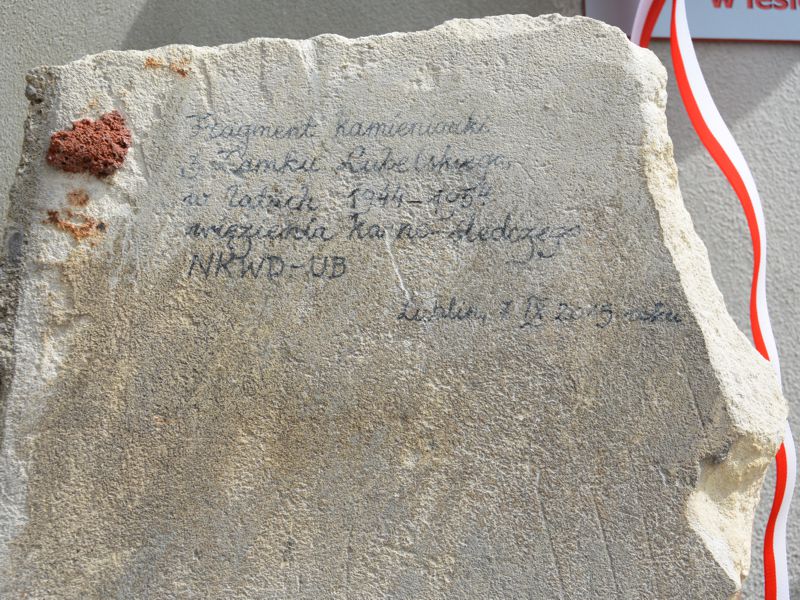 w lesie
Fragment kamienionki
z Zamku Lubelskiego,
w latach 1944-1954
więzienia karno-śledczego
NKWD-UB
Lublin, 7 IX 2013 roku